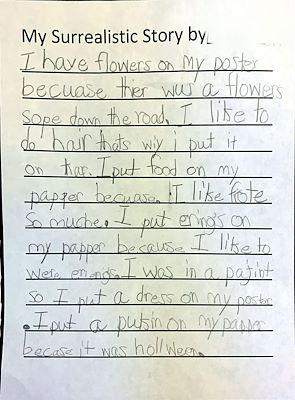 My Surrealistic Story by
I have flowers on my poster
becuase thier was a flowers
sope down the road. I like to
do hair thats wiy i put it
on thar. I put food on my
papper becuase. I like frote
so muche. I put ering's on
my papper because I like to
were erings. I was in a pajint
so I put a dress on my postor
. I put a putsin on my papper
becase it was hollween.